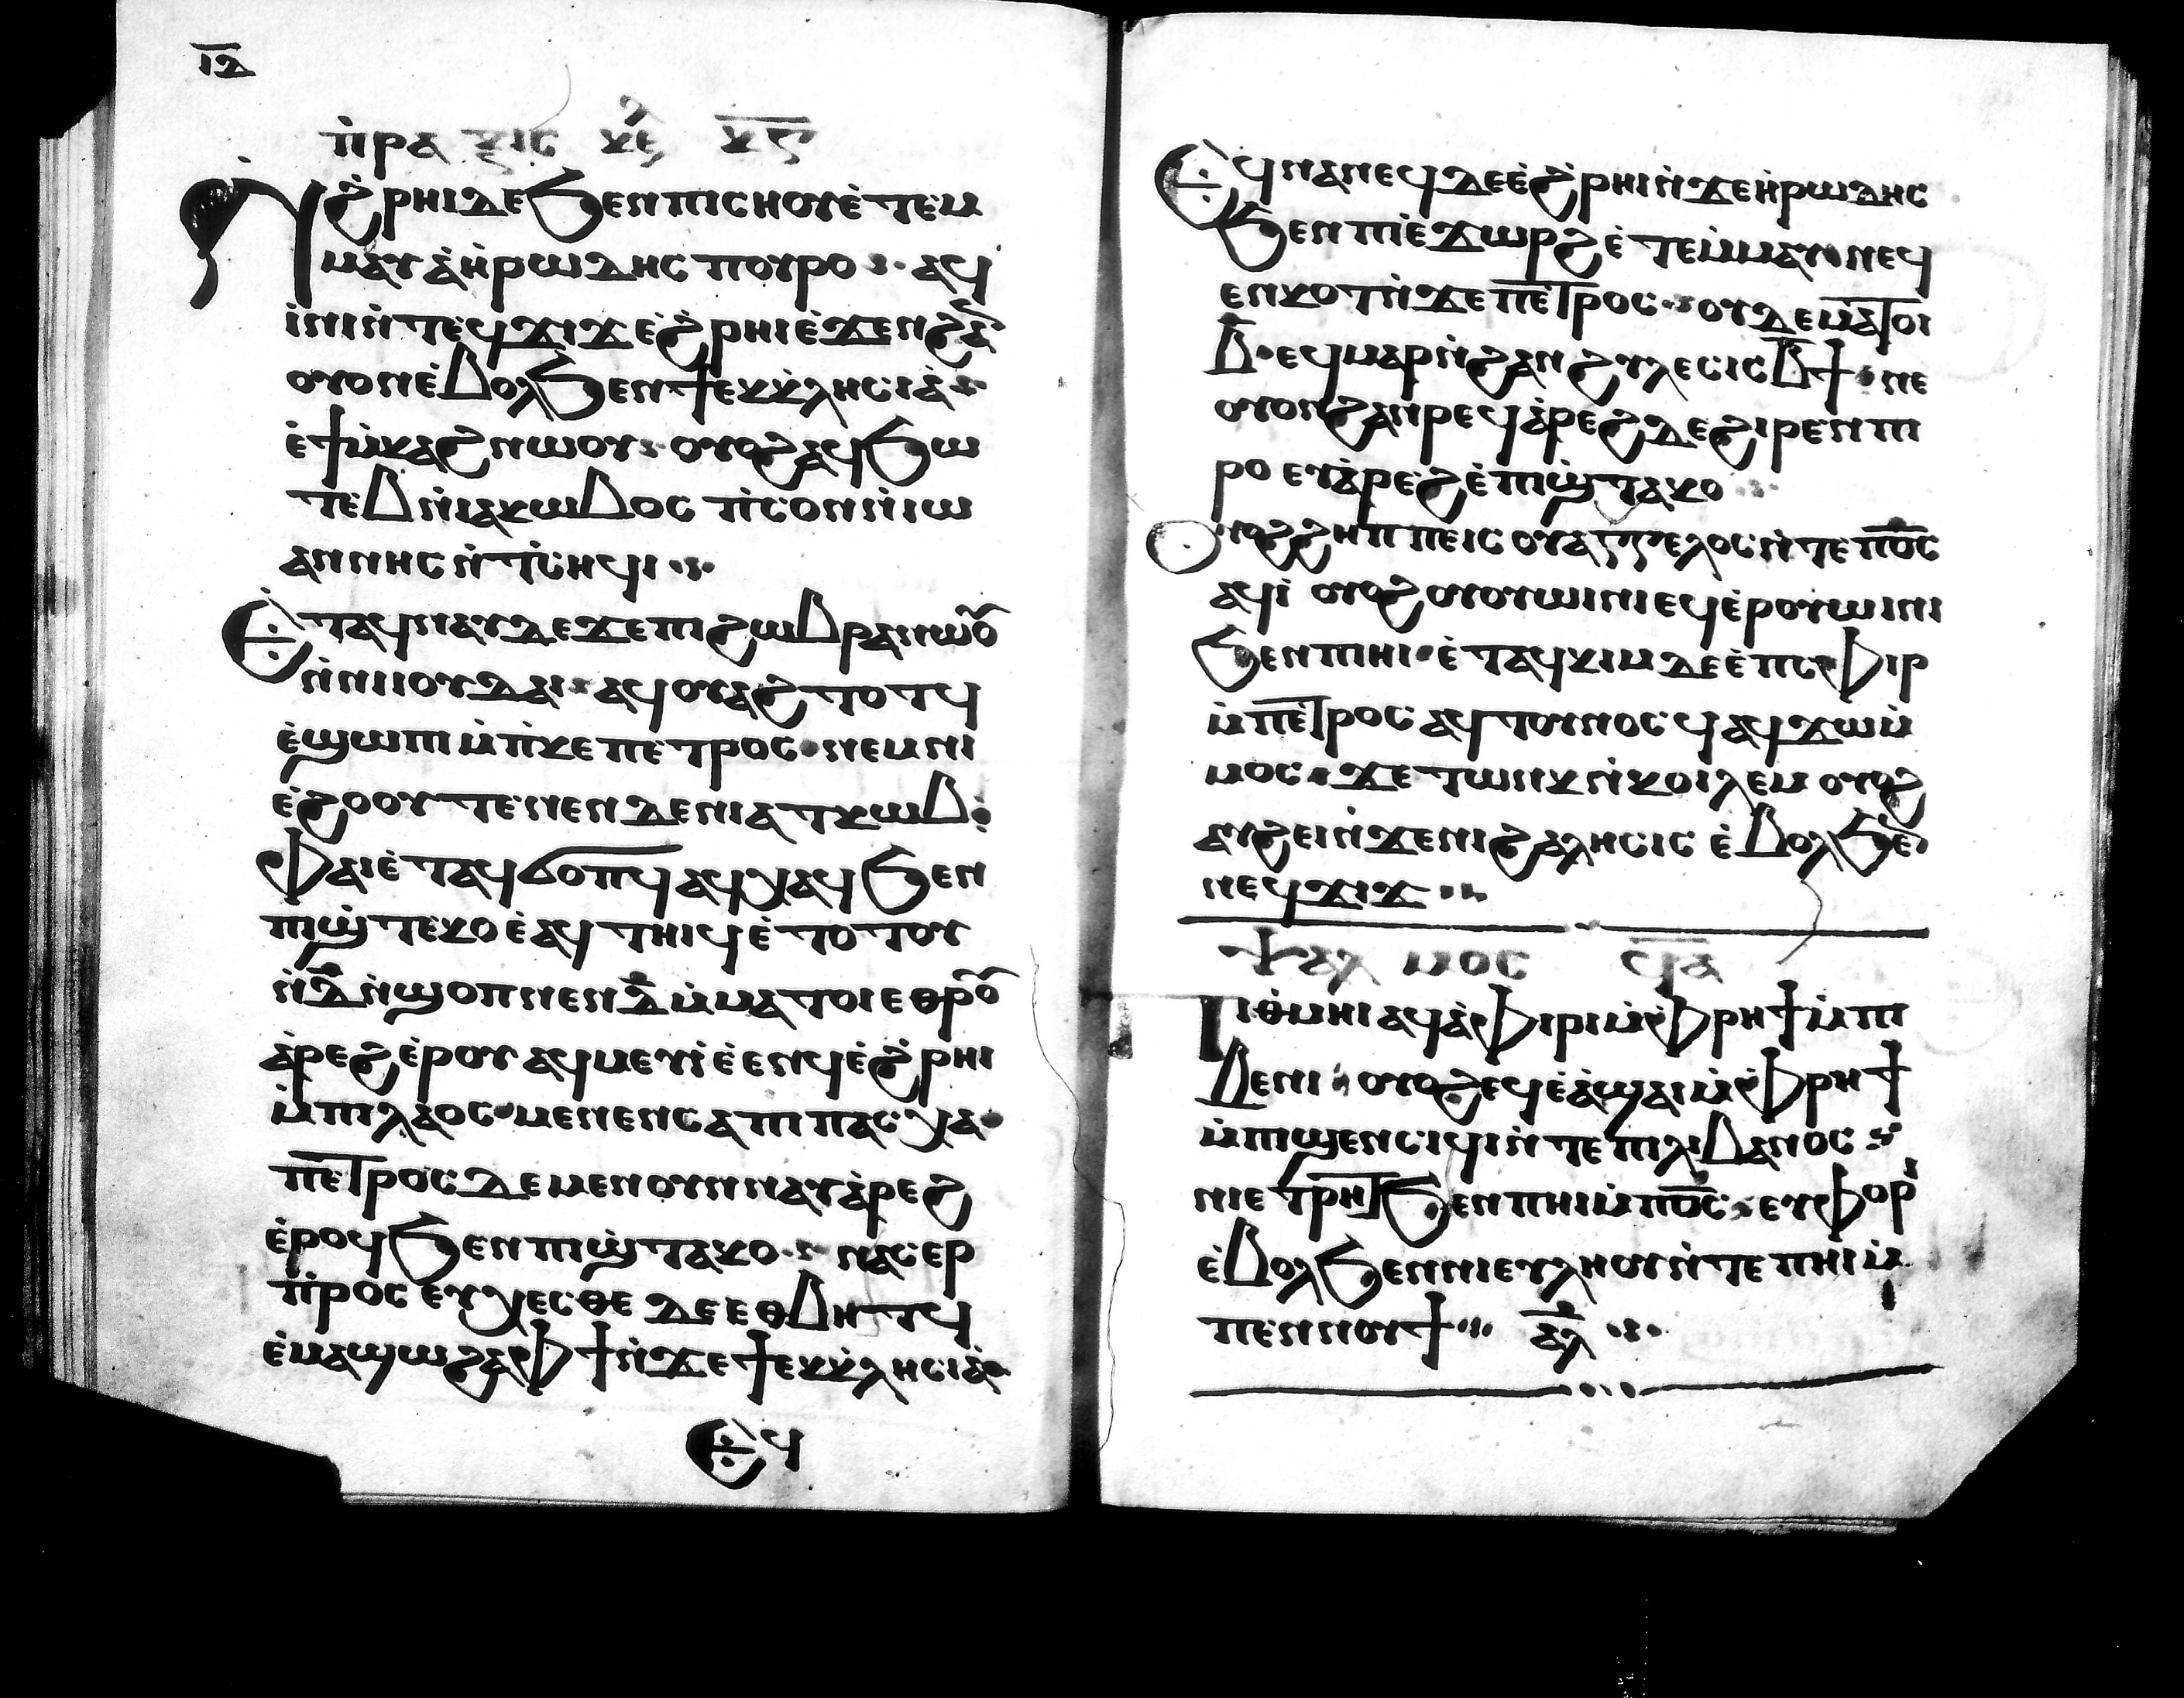 ⲓⲇ̅
ⲡ̀ⲣⲁⲝⲓⲥ ⲕⲉ ⲕ̅ⲋ̅
Ⲛϩ̀ⲣⲏⲓⲇⲉϧⲉⲛⲡⲓⲥⲏⲟⲩⲉ̀ⲧⲉⲙ
ⲙⲁⲩⲁ̀ⲏ̀ⲣⲱⲇⲏⲥ ⲡⲟⲩⲣⲟ ⲁϥ
ⲓⲛⲓⲛ̀ⲧⲉϥϫⲓϫ ⲉ̀ϩ̀ⲣⲏⲓ ⲉ̀ϫⲉⲛϩⲁ̅
ⲟⲩⲟⲛⲉ̀ⲃⲟⲗϧⲉⲛϯⲉⲕⲕ̀ⲗⲏⲥⲓⲁ̀
ⲉ̀ϯⲙ̀ⲕⲁϩⲛⲱⲟⲩ ⲟⲩⲟϩⲁϥϧⲱ
ⲧⲉⲃⲛ̀ⲓⲁⲕⲱⲃⲟⲥ ⲡ̀ⲥⲟⲛⲛ̀ⲓⲱ
ⲁⲛⲛⲏⲥ ⲛ̀ⲧ̀ⲥⲏϥⲓ
Ⲉ̀ⲧⲁϥⲛⲁⲩⲇⲉϫⲉⲡⲓϩⲱⲃⲣⲁⲛⲱⲟ̅
ⲛ̀ⲛⲓⲓⲟⲩⲇⲁⲓ ⲁϥⲟⲩⲁϩⲧⲟⲧϥ
ⲉ̀ϣⲱⲡⲓ ⲙ̀ⲡ̀ⲕⲉⲡⲉⲧⲣⲟⲥ ⲛⲉⲙⲛⲓ
ⲉ̀ϩⲟⲟⲩ ⲧⲉⲛⲉⲛⲇⲉⲛⲓⲁⲧⲕⲱⲃ
ⲫⲁⲓⲉ̀ⲧⲁϥϭⲟⲡϥ ⲁϥⲭⲁϥϧⲉⲛ
ⲡⲓϣ̀ⲧⲉⲕⲟ ⲉ̀ⲁϥⲧⲏⲓϥ ⲉ̀ⲧⲟⲧⲟⲩ
ⲛ̀ⲇ̅ⲛ̀ϣⲟⲡⲛⲉⲛⲇ̅ⲙ̀ⲙⲁⲧⲟⲓ ⲉⲑⲣⲟ̅
ⲁ̀ⲣⲉϩⲉ̀ⲣⲟⲩ ⲁϥⲙⲉⲩⲓ̀ⲉ̀ⲉⲛϥⲉ̀ϩ̀ⲣⲏⲓ
ⲙ̀ⲡⲓⲗⲁⲟⲥ ⲙⲉⲛⲉⲛⲥⲁⲡⲓⲡⲁⲥⲭⲁ
ⲡⲉⲧⲣⲟⲥ ⲇⲉⲙⲉⲛⲟⲩⲛⲛⲁⲩⲁ̀ⲣⲉϩ
ⲉ̀ⲣⲟϥϧⲉⲛⲡⲓϣ̀ⲧⲁⲕⲟ ⲛⲁⲥⲉⲣ
ⲡ̀ⲣⲟⲥⲉⲩⲭⲉⲥⲑⲉ ⲇⲉⲉⲑⲃⲏⲧϥ
ⲉ̀ⲙⲁϣⲱϩⲁⲫϯⲛ̀ϫⲉϯⲉⲕⲕ̀ⲗⲏⲥⲓⲁ̀
Ⲉϥ
Ⲉϥⲛⲁⲛⲉϥⲇⲉⲉ̀ϩ̀ⲣⲏⲓⲛ̀ϫⲉⲏ̀ⲣⲱⲇⲏⲥ
ϧⲉⲛⲡⲓⲉ̀ϫⲱⲣϩ ⲉ̀ⲧⲉⲙ̀ⲙⲁⲩ ⲛⲉϥ
ⲉⲛⲕⲟⲧⲛ̀ϫⲉ ⲡⲉⲧⲣⲟⲥ ⲟⲩⲇⲉⲙⲁⲧⲟⲓ
ⲃ̅ ⲉϥⲙⲁⲣⲛ̀ϩⲁⲛϩⲩⲗⲉⲥⲓⲥ ⲃ̅ϯ ⲛⲉ
ⲟⲩⲟⲛϩⲁⲛⲣⲉϥⲁ̀ⲣⲉϩⲇⲉϩⲓⲣⲉⲛⲡⲓ
ⲣⲟ ⲉⲩⲁ̀ⲣⲉϩⲉ̀ⲡⲓϣ̀ⲧⲁⲕⲟ
Ⲟⲩⲟϩϩⲏⲡⲡⲉⲓⲥ ⲟⲩⲁⲅⲅⲉⲗⲟⲥⲛ̀ⲧⲉ ⲡ̅ⲟ̅ⲥ̅
ⲁϥⲓ̀ ⲟⲩⲟϩ ⲟⲩⲟⲩⲱⲓⲛⲓ ⲉϥⲉ̀ⲣⲟⲩⲱⲓⲛⲓ
ϧⲉⲛⲡⲓⲏⲓ ⲉ̀ⲧⲁϥⲕⲓⲙⲇⲉⲉ̀ⲡⲥⲫⲓⲣ
ⲙ̀ⲡⲉⲧⲣⲟⲥ ⲁϥⲧⲟⲩⲛⲟⲥϥ ⲁϥϫⲱⲙ̀
ⲙⲟⲥ ϫⲉ ⲧⲱⲛⲕ ⲛ̀ⲕⲟⲓⲗⲉⲙ ⲟⲩⲟϩ
ⲁⲩϩⲉⲓⲛ̀ϫⲉⲛⲓϩⲁⲗⲏⲥⲓⲥ ⲉ̀ⲃⲟⲗϧⲉ̅
ⲛⲉϥϫⲓϫ
ⲯⲁⲗⲙⲟⲥ ϥ̅ⲁ̅
Ⲡⲓⲑ̀ⲙⲏⲓ ⲁϥⲁ̀ⲫⲓⲣⲓⲙ̀ⲫⲣⲏϯⲙ̀ⲡⲓ
ⲃⲉⲛⲓ ⲟⲩⲟϩⲉϥⲉ̀ⲁ̀ϣⲁⲓⲙ̀ⲫⲣⲏϯ
ⲙ̀ⲡⲓϣⲉⲛⲥⲓϥⲓⲛ̀ⲧⲉ ⲡⲓⲗⲓⲃⲁⲛⲟⲥ
ⲛⲓⲉⲧⲣⲏⲧϧⲉⲛⲡⲏⲓⲙ̀ⲡ̅ⲟ̅ⲥ̅ ⲉⲩⲫⲟⲣⲓ
ⲉ̀ⲃⲟⲗϧⲉⲛⲛⲓⲉⲩⲗⲏⲟⲩⲛ̀ⲧⲉ ⲡⲏⲓ ⲙ̀
ⲡⲉⲛⲛⲟⲩϯ ⲁ̅ⲗ̅